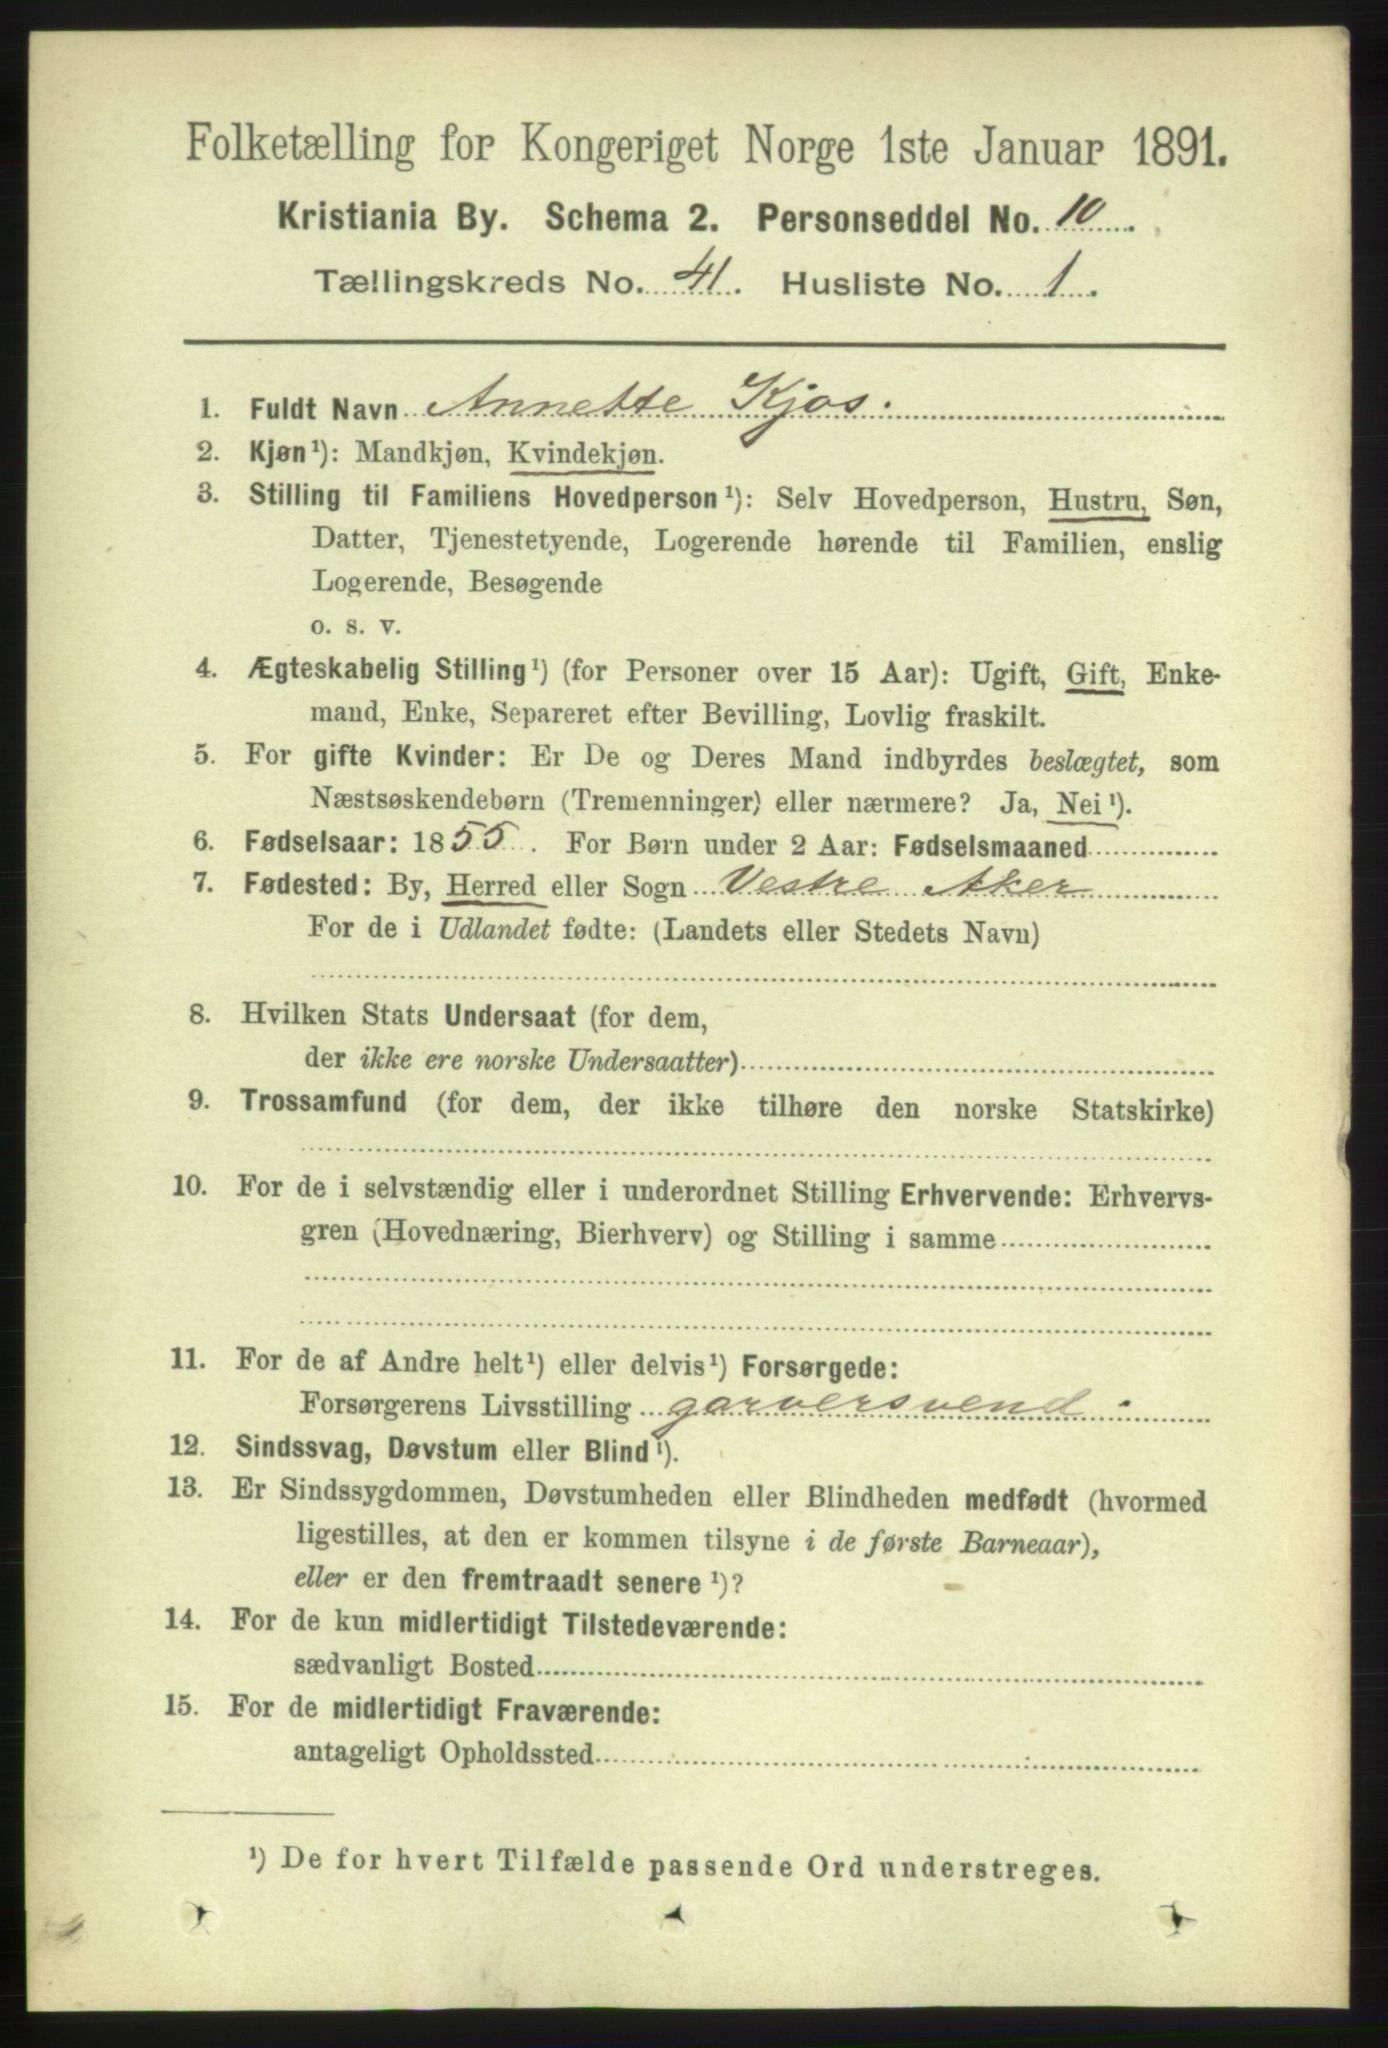 Folketælling for Kongeriget Norge 1ste Januar 1891.
Kristiania By. Schema 2. Personseddel No. 10.
Tællingskreds No. 41. Husliste No. 1.
1. Fuldt Navn Annette Kjos.
2. Kjøn¹): Mandkjøn, Kvindekjøn.
3. Stilling til Familiens Hovedperson¹): Selv Hovedperson, Hustru, Søn,
Datter, Tjenestetyende, Logerende hørende til Familien, enslig
Logerende, Besøgende
o. s. v.
4. Ægteskabelig Stilling¹) (for Personer over 15 Aar): Ugift, Gift, Enke-
mand, Enke, Separeret efter Bevilling, Lovlig fraskilt.
5. For gifte Kvinder: Er De og Deres Mand indbyrdes beslægtet, som
Næstsøskendebørn (Tremenninger) eller nærmere? Ja, Nei¹).
6. Fødselsaar: 1855. For Børn under 2 Aar: Fødselsmaaned
7. Fødested: By, Herred eller Sogn Vestre Aker
For de i Udlandet fødte: (Landets eller Stedets Navn)
8. Hvilken Stats Undersaat (for dem,
der ikke ere norske Undersaatter)
9. Trossamfund (for dem, der ikke tilhøre den norske Statskirke)
10. For de i selvstændig eller i underordnet Stilling Erhvervende: Erhvervs-
gren (Hovednæring, Bierhverv) og Stilling i samme
11. For de af Andre helt¹) eller delvis¹) Forsørgede:
Forsørgerens Livsstilling garversvend.
12. Sindssvag, Døvstum eller Blind¹).
13. Er Sindssygdommen, Døvstumheden eller Blindheden medfødt (hvormed
ligestilles, at den er kommen tilsyne i de første Barneaar),
eller er den fremtraadt senere¹)?
14. For de kun midlertidigt Tilstedeværende:
sædvanligt Bosted
15. For de midlertidigt Fraværende:
antageligt Opholdssted
¹) De for hvert Tilfælde passende Ord understreges.